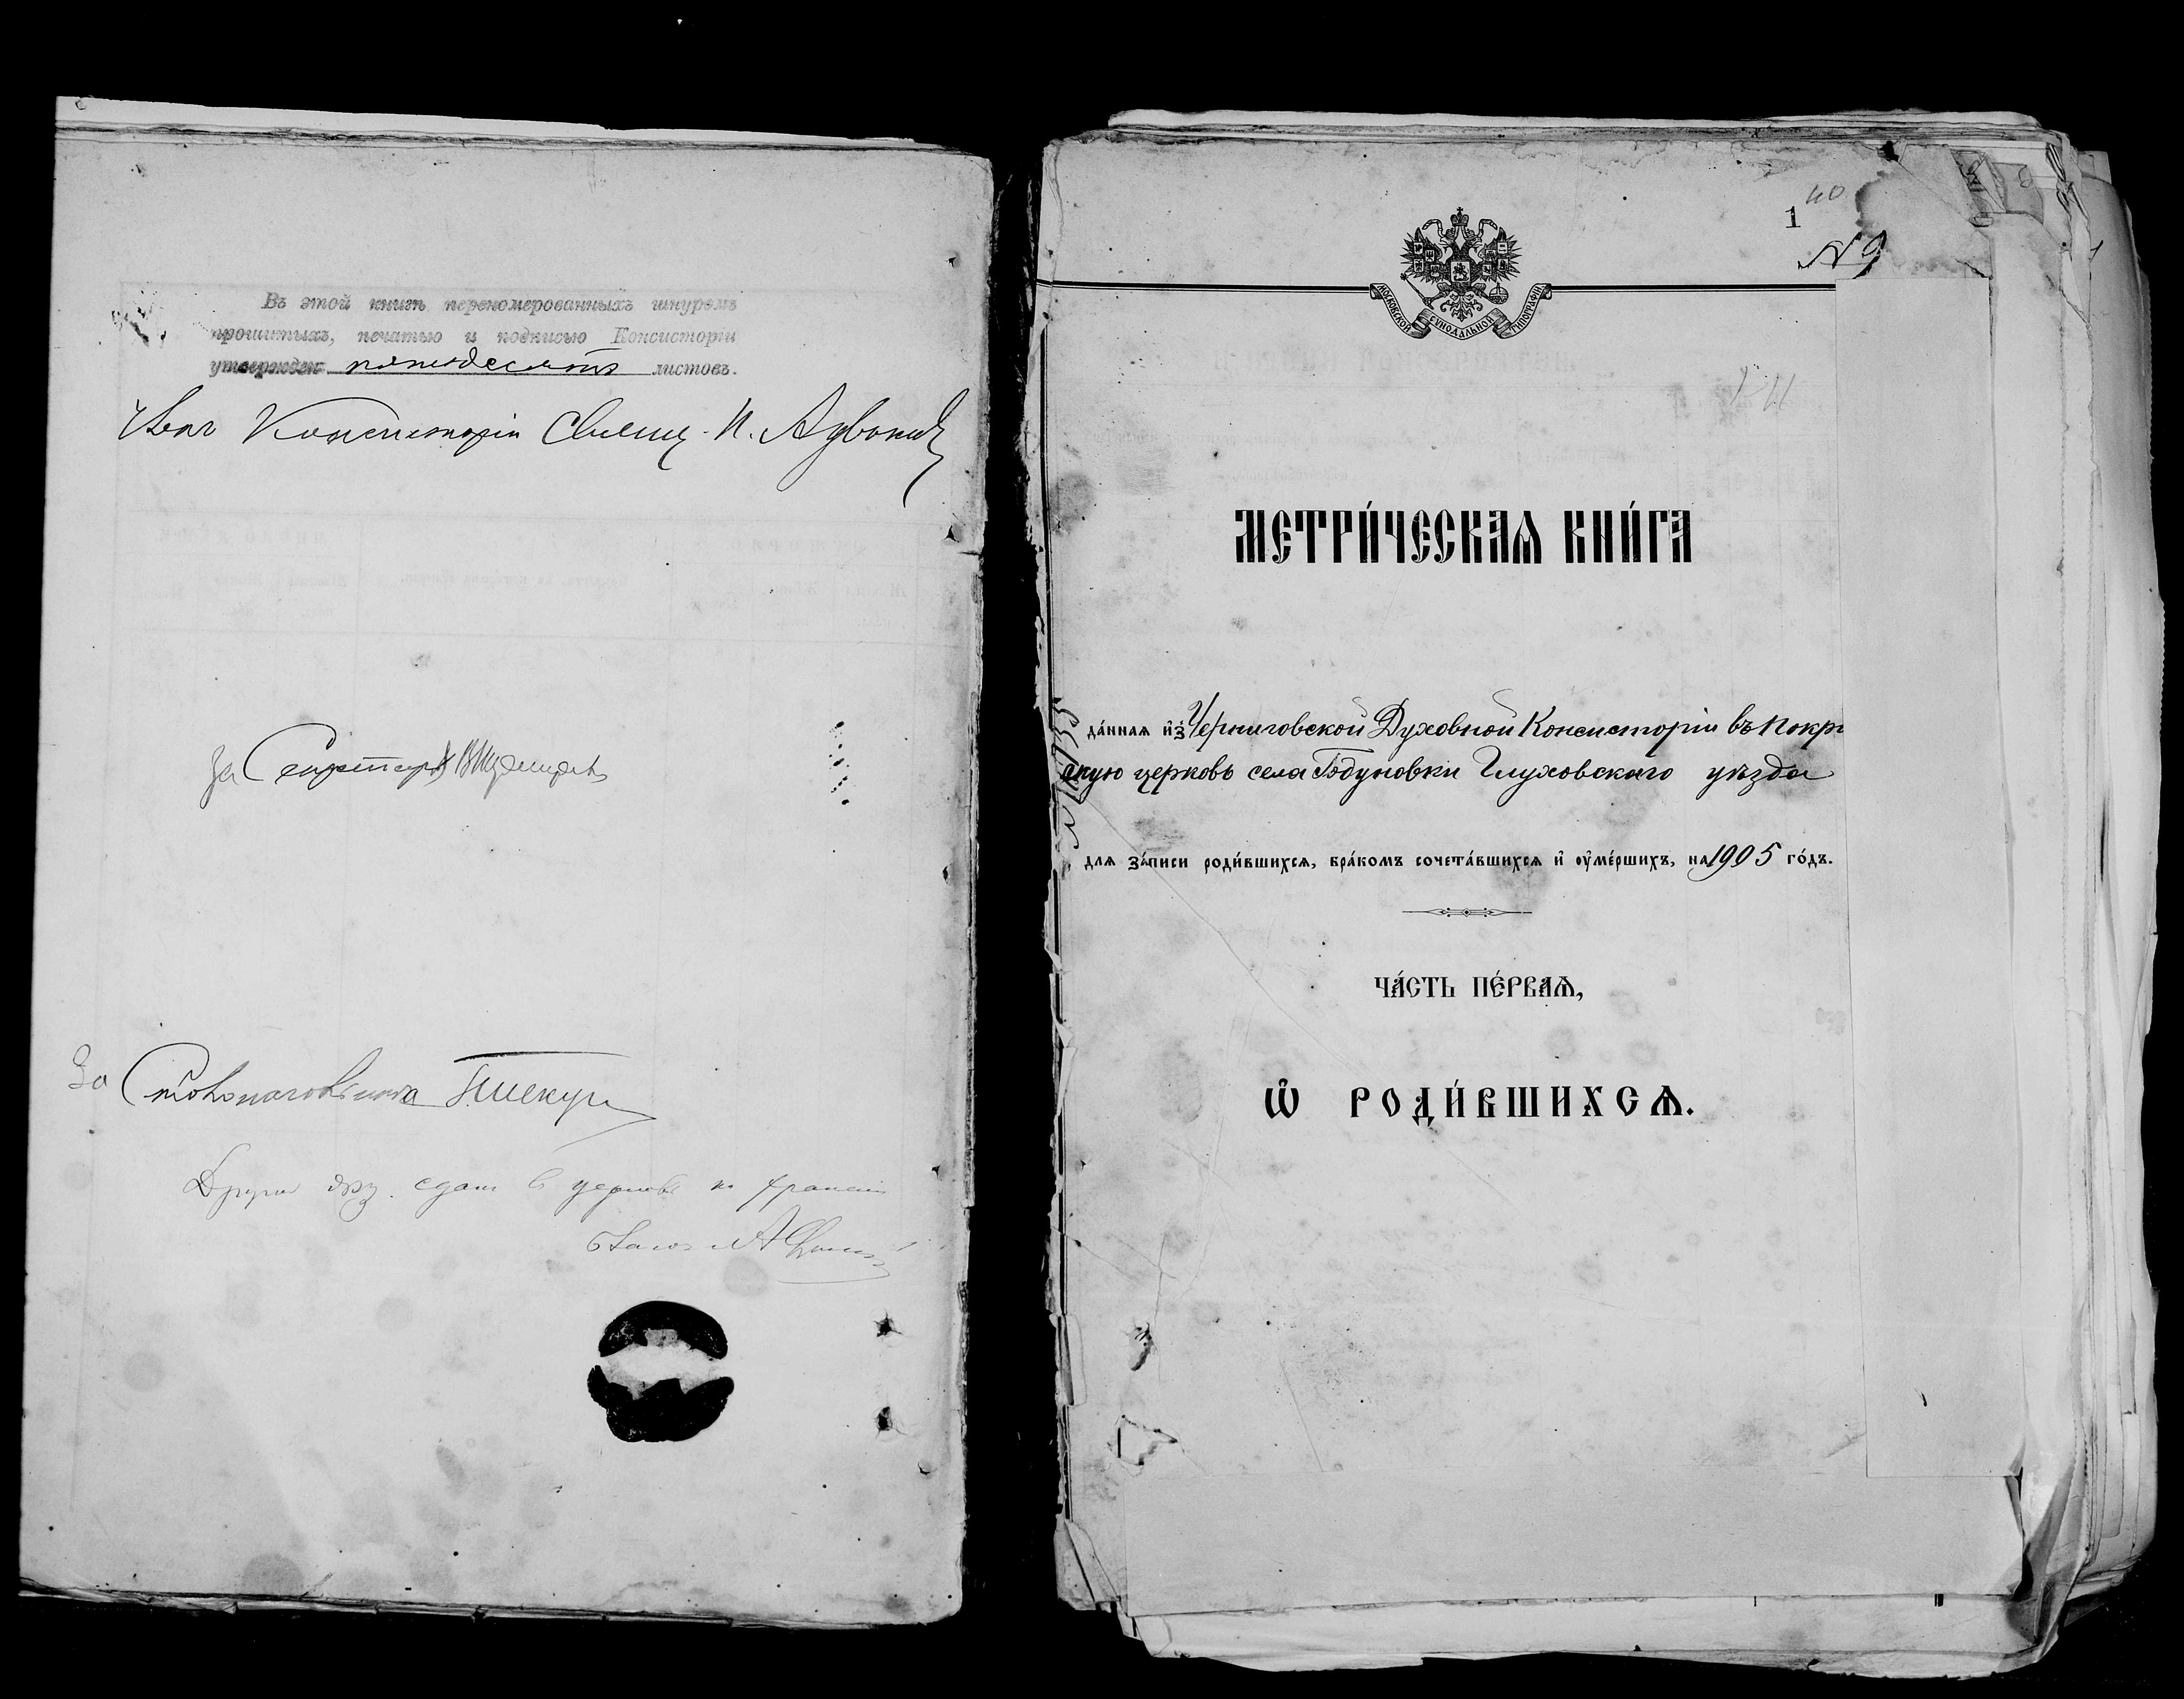 Въ этой книгѣ перенумерованныхъ шнуромъ
прошитыхъ, печатью и подписью Консисторіи
утвержден пятьдесятъ листовъ.
Членъ Консисторіи Свящ. П.
За Секретаря
За Столоначальника
Другой экз. сдан в церковь на хранение
40
1
N 9
МОСКОВСКОЙ СѴНОДАЛЬНОЙ ТИПОГРАФІИ
МЕТРИ́ЧЕСКАѦ КНИ́ГА
да́нная и҆з̾ Черниговской Духовной Консисторіи въ Покр
скую церковь села Годуновки Глуховскаго уѣзда
для за́писи роди́вшихся, бра́комъ сочета́вшихся и҆ оу҆ме́ршихъ, на 1905 го́дъ.
ЧА́СТЬ ПЕ́РВАѦ,
Ѡ҆ РОДИ́ВШИХСѦ.